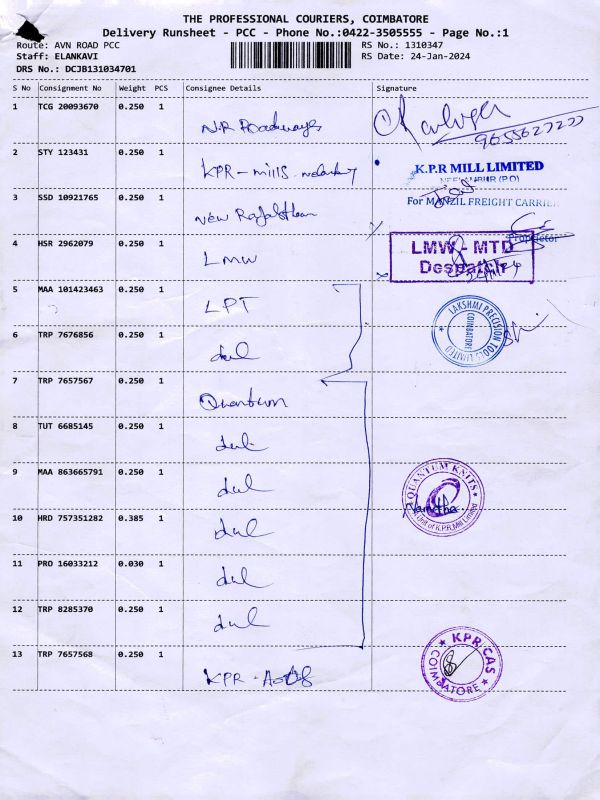 THE PROFESSIONAL COURIERS, COIMBATORE
Delivery Runsheet - PCC - Phone No.:0422-3505555 - Page No.:1
Route: AVN ROAD PCC RS No.: 1310347
Staff: ELANKAVI RS Date: 24-Jan-2024
DRS No.: DCJB131034701
S No Consignment No Weight PCS Consignee Details Signature
1 TCG 20093670 0.250 1 N.R Roadways
2 STY 123431 0.250 1 KPR - mills
K.P.R MILL LIMITED
NEELAMBUR (P.O)
3 SSD 10921765 0.250 1 New Rajasthan
For MANZIL FREIGHT CARRIER
Proprietor
4 HSR 2962079 0.250 1 LMW
LMW - MTD
Despatch
5 MAA 101423463 0.250 1 LPT
LAKSHMI PRECISION TOOLS LIMITED
COIMBATORE
6 TRP 7676856 0.250 1
7 TRP 7657567 0.250 1 Quantum
8 TUT 6685145 0.250 1
9 MAA 863665791 0.250 1
QUANTUM KNITS
Unit of K.P.R. Mill Limited
10 HRD 757351282 0.385 1
11 PRO 16033212 0.030 1
12 TRP 8285370 0.250 1
13 TRP 7657568 0.250 1 KPR -
KPR CAS
COIMBATORE